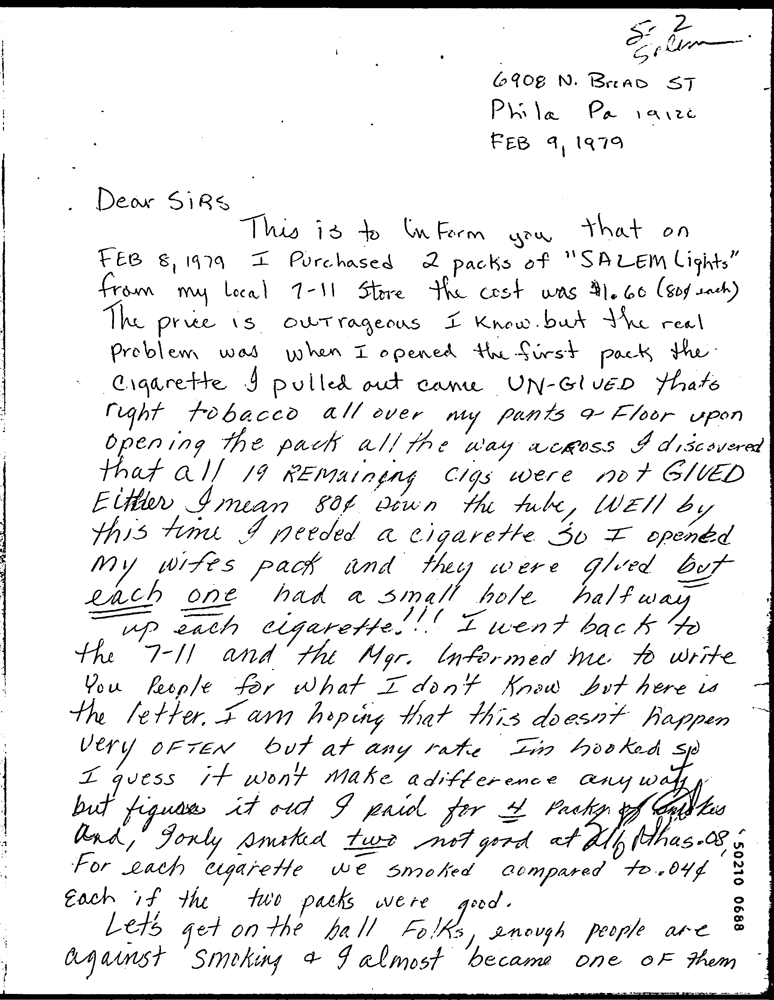 5-2
Salem
6908 N. BROAD ST
Phila Pa
FEB 9, 1979
Dear SIRS
This is to InForm you that on
FEB 8, 1979 I Purchased 2 packs of "SALEM Lights"
from my Local 7-11 Store the cost was $1.60 (80¢ each)
The price is outrageous I know. but the real
problem was when I opened the first pack the
cigarette I pulled out came UN-GlUED thats
right tobacco all over my pants & Floor upon
opening the pack all the way across I discovered
that all 19 REMaining cigs were not GlUED
Either I mean 80¢ Down the tube, WEll by
this time I needed a cigarette so I opened
My wifes pack and they were glued but
each one had a small hole halfway
up each cigarette.!!! I went back to
the 7-11 and the Mgr. Informed me to write
You People for what I don't Know but here is
the letter. I am hoping that this doesn't happen
very OFTEN but at any rate Im hooked so
I guess it won't make a difference any way
but figure it out I paid for 4 Packs of
And, I only smoked two not good at .08,
For each cigarette we smoked compared to .04¢
Each if the two packs were good.
Let's get on the ball Folks, enough people are
against smoking & I almost became one oF them
50210 0688